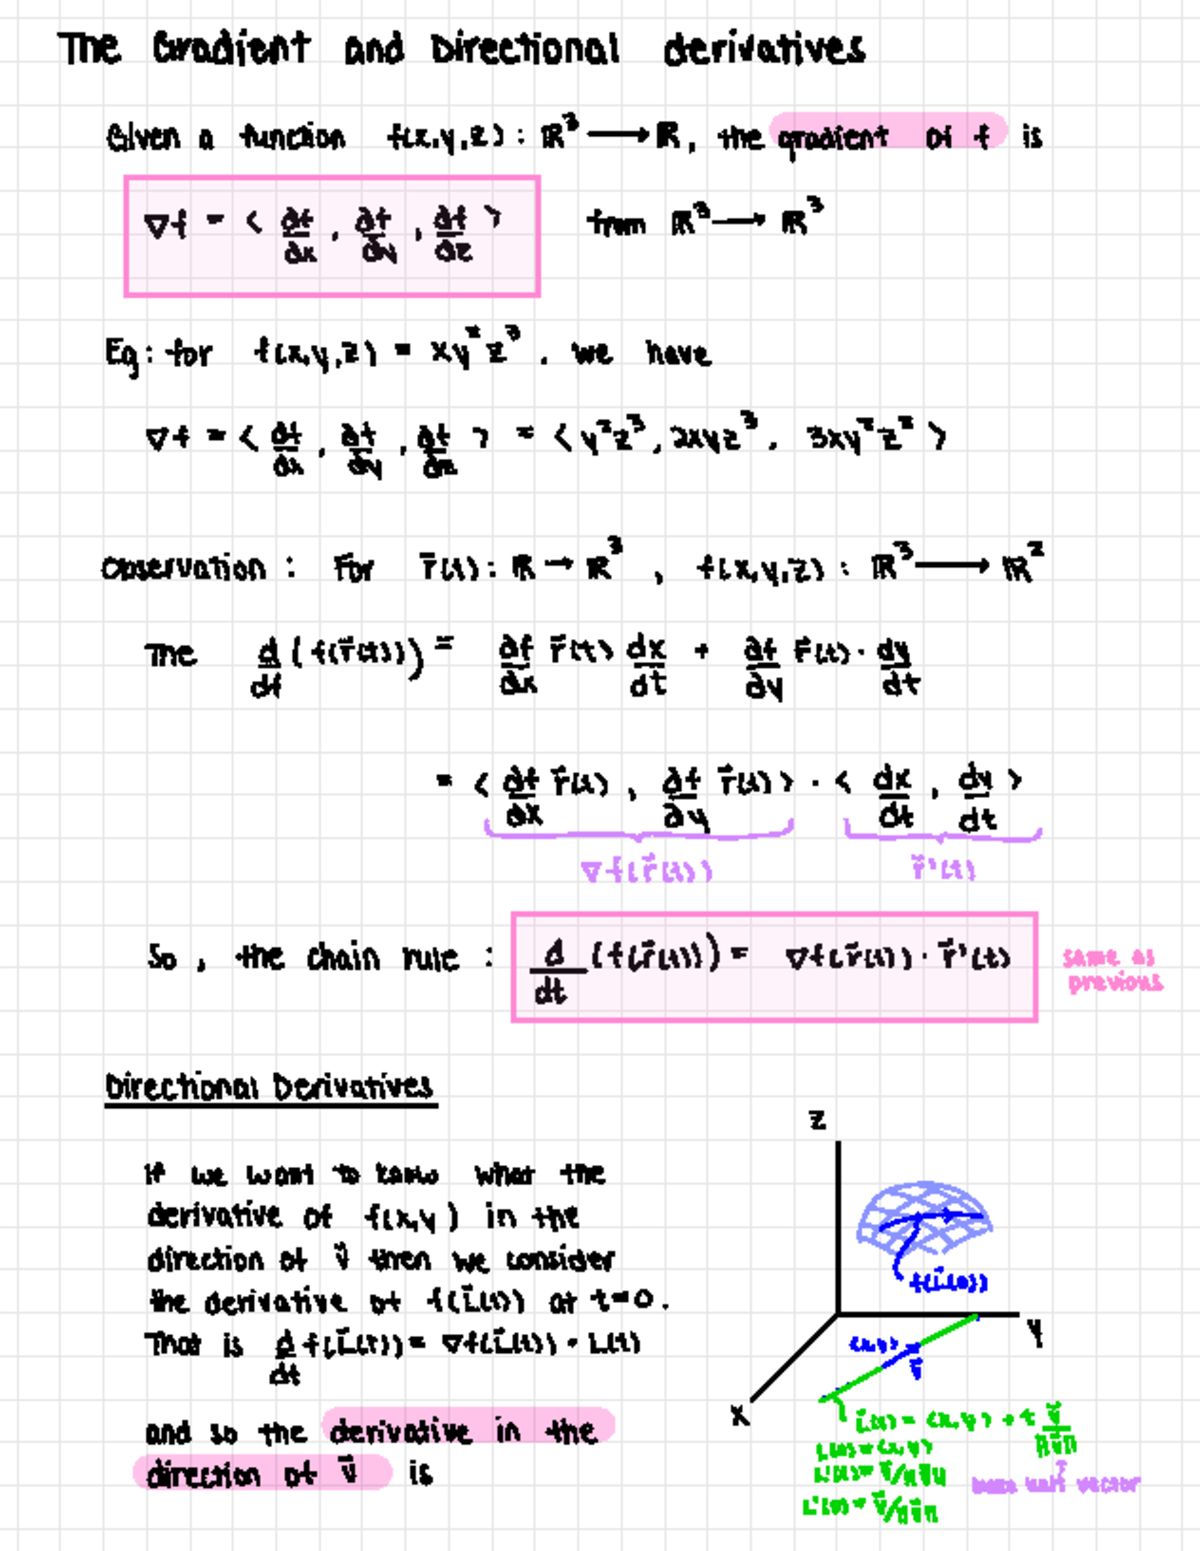 The Gradient and Directional derivatives
Given a function f(x,y,z) : ℝ³ ⟶ ℝ, the gradient of f is
∇f = < ∂f/∂x , ∂f/∂y , ∂f/∂z > from ℝ³ ⟶ ℝ³
Eg: for f(x,y,z) = xy²z³ , we have
∇f = < ∂f/∂x , ∂f/∂y , ∂f/∂z > = < y²z³, 2xyz³, 3xy²z² >
Observation : For r⃗(t) : ℝ → ℝ³ , f(x,y,z) : ℝ³ ⟶ ℝ²
The d/df (f(r⃗(t))) = ∂f/∂x r⃗(t) dx/dt + ∂f/∂y r⃗(t) · dy/dt
= < ∂f/∂x r⃗(t) , ∂f/∂y r⃗(t) > · < dx/dt , dy/dt >
∇f(r⃗(t)) r⃗'(t)
So , the chain rule : d/dt (f(r⃗(t))) = ∇f(r⃗(t)) · r⃗'(t) same as previous
Directional Derivatives
If we want to know what the
derivative of f(x,y) in the
direction of v⃗ then we consider
the derivative of f(L⃗(t)) at t=0.
That is d/dt f(L⃗(t)) = ∇f(L⃗(t)) · L(t)
and so the derivative in the
direction of v⃗ is
Z
f(L⃗(0))
Y
(x,y) = v⃗
X
L⃗(t) = (x,y) + t v⃗/‖v⃗‖
L(0) = (x,y)
L'(t) = v⃗/‖v⃗‖
unit vector
L'(0) = v⃗/‖v⃗‖